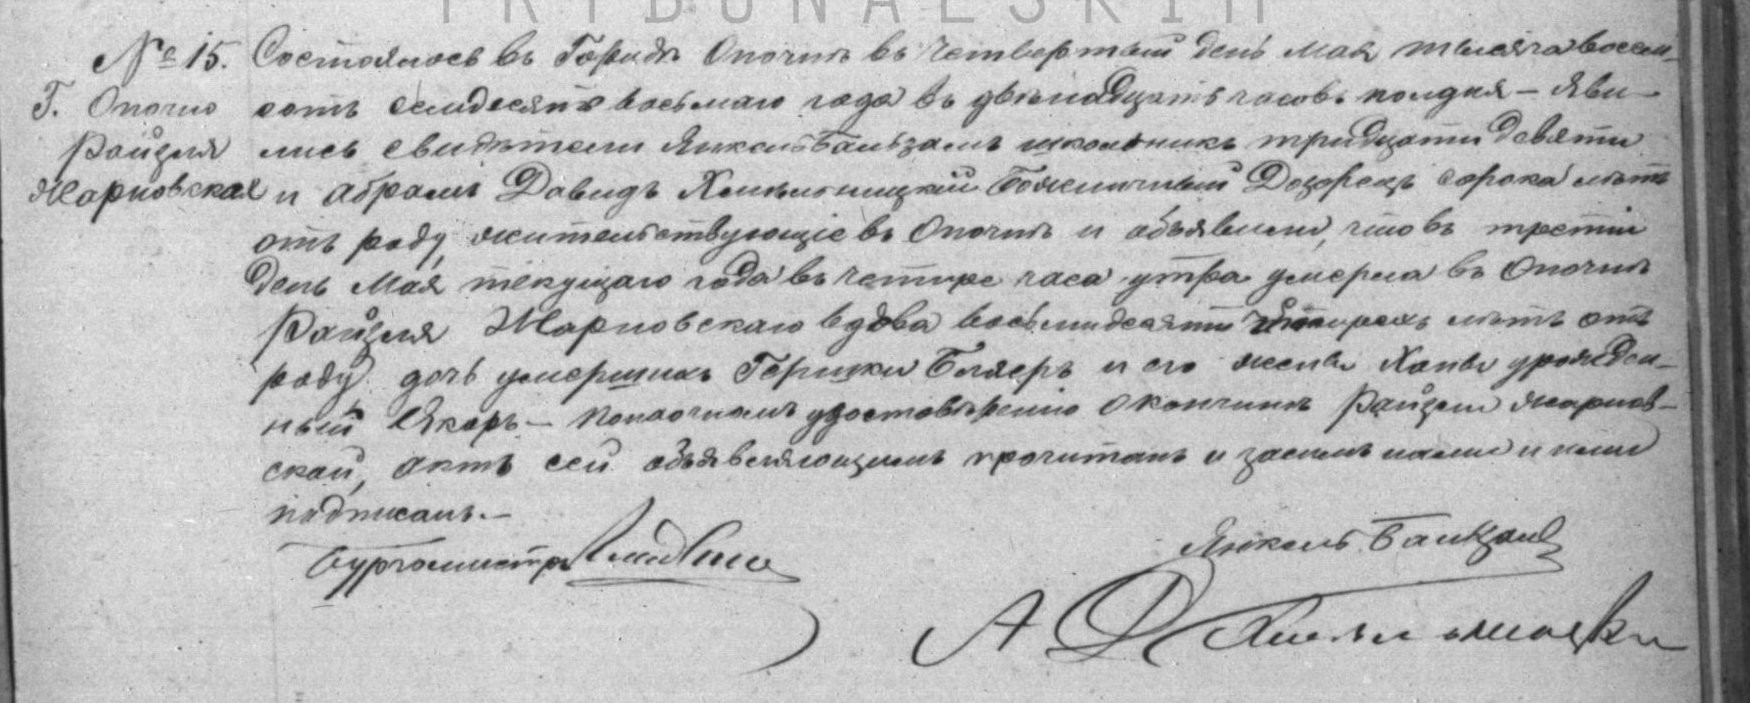 TRYBUNALSKIM
№ 15. Состоялось въ Городѣ Опочнѣ въ четвертый день мая тысяча восем-
Г. Опочно сотъ семидесятъ восьмаго года въ двѣнадцать часовъ полдня – яви-
Райзля лись свидѣтели Янкель Бальзамъ школьникъ тридцати девяти
Жарновская и Абрамъ Давидъ Хмѣльницкій Божничный Дозорецъ сорока лѣтъ
отъ роду, жительствующіе въ Опочнѣ и объявили, что въ третій
день Мая текущаго года въ четыре часа утра умерла въ Опочнѣ
Райзля Жарновскаго вдова восьмидесяти четырехъ лѣтъ отъ
роду, дочь умершихъ Гершки и его жены Ханы урожден-
ный – По наочномъ удостовѣреніи о кончинѣ Райзли Жарнов-
ской, актъ сей объявляющимъ прочитанъ и засимъ нами и ними
подписанъ.–
Бургомистръ
Янкель Балцам
А Д Хмельницки